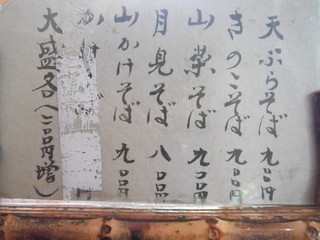 天ぷらそば 九〇〇円
きのこそば 九〇〇円
山菜そば 九〇〇円
月見そば 八〇〇円
山かけそば 九〇〇円
大盛各(二〇〇円増)